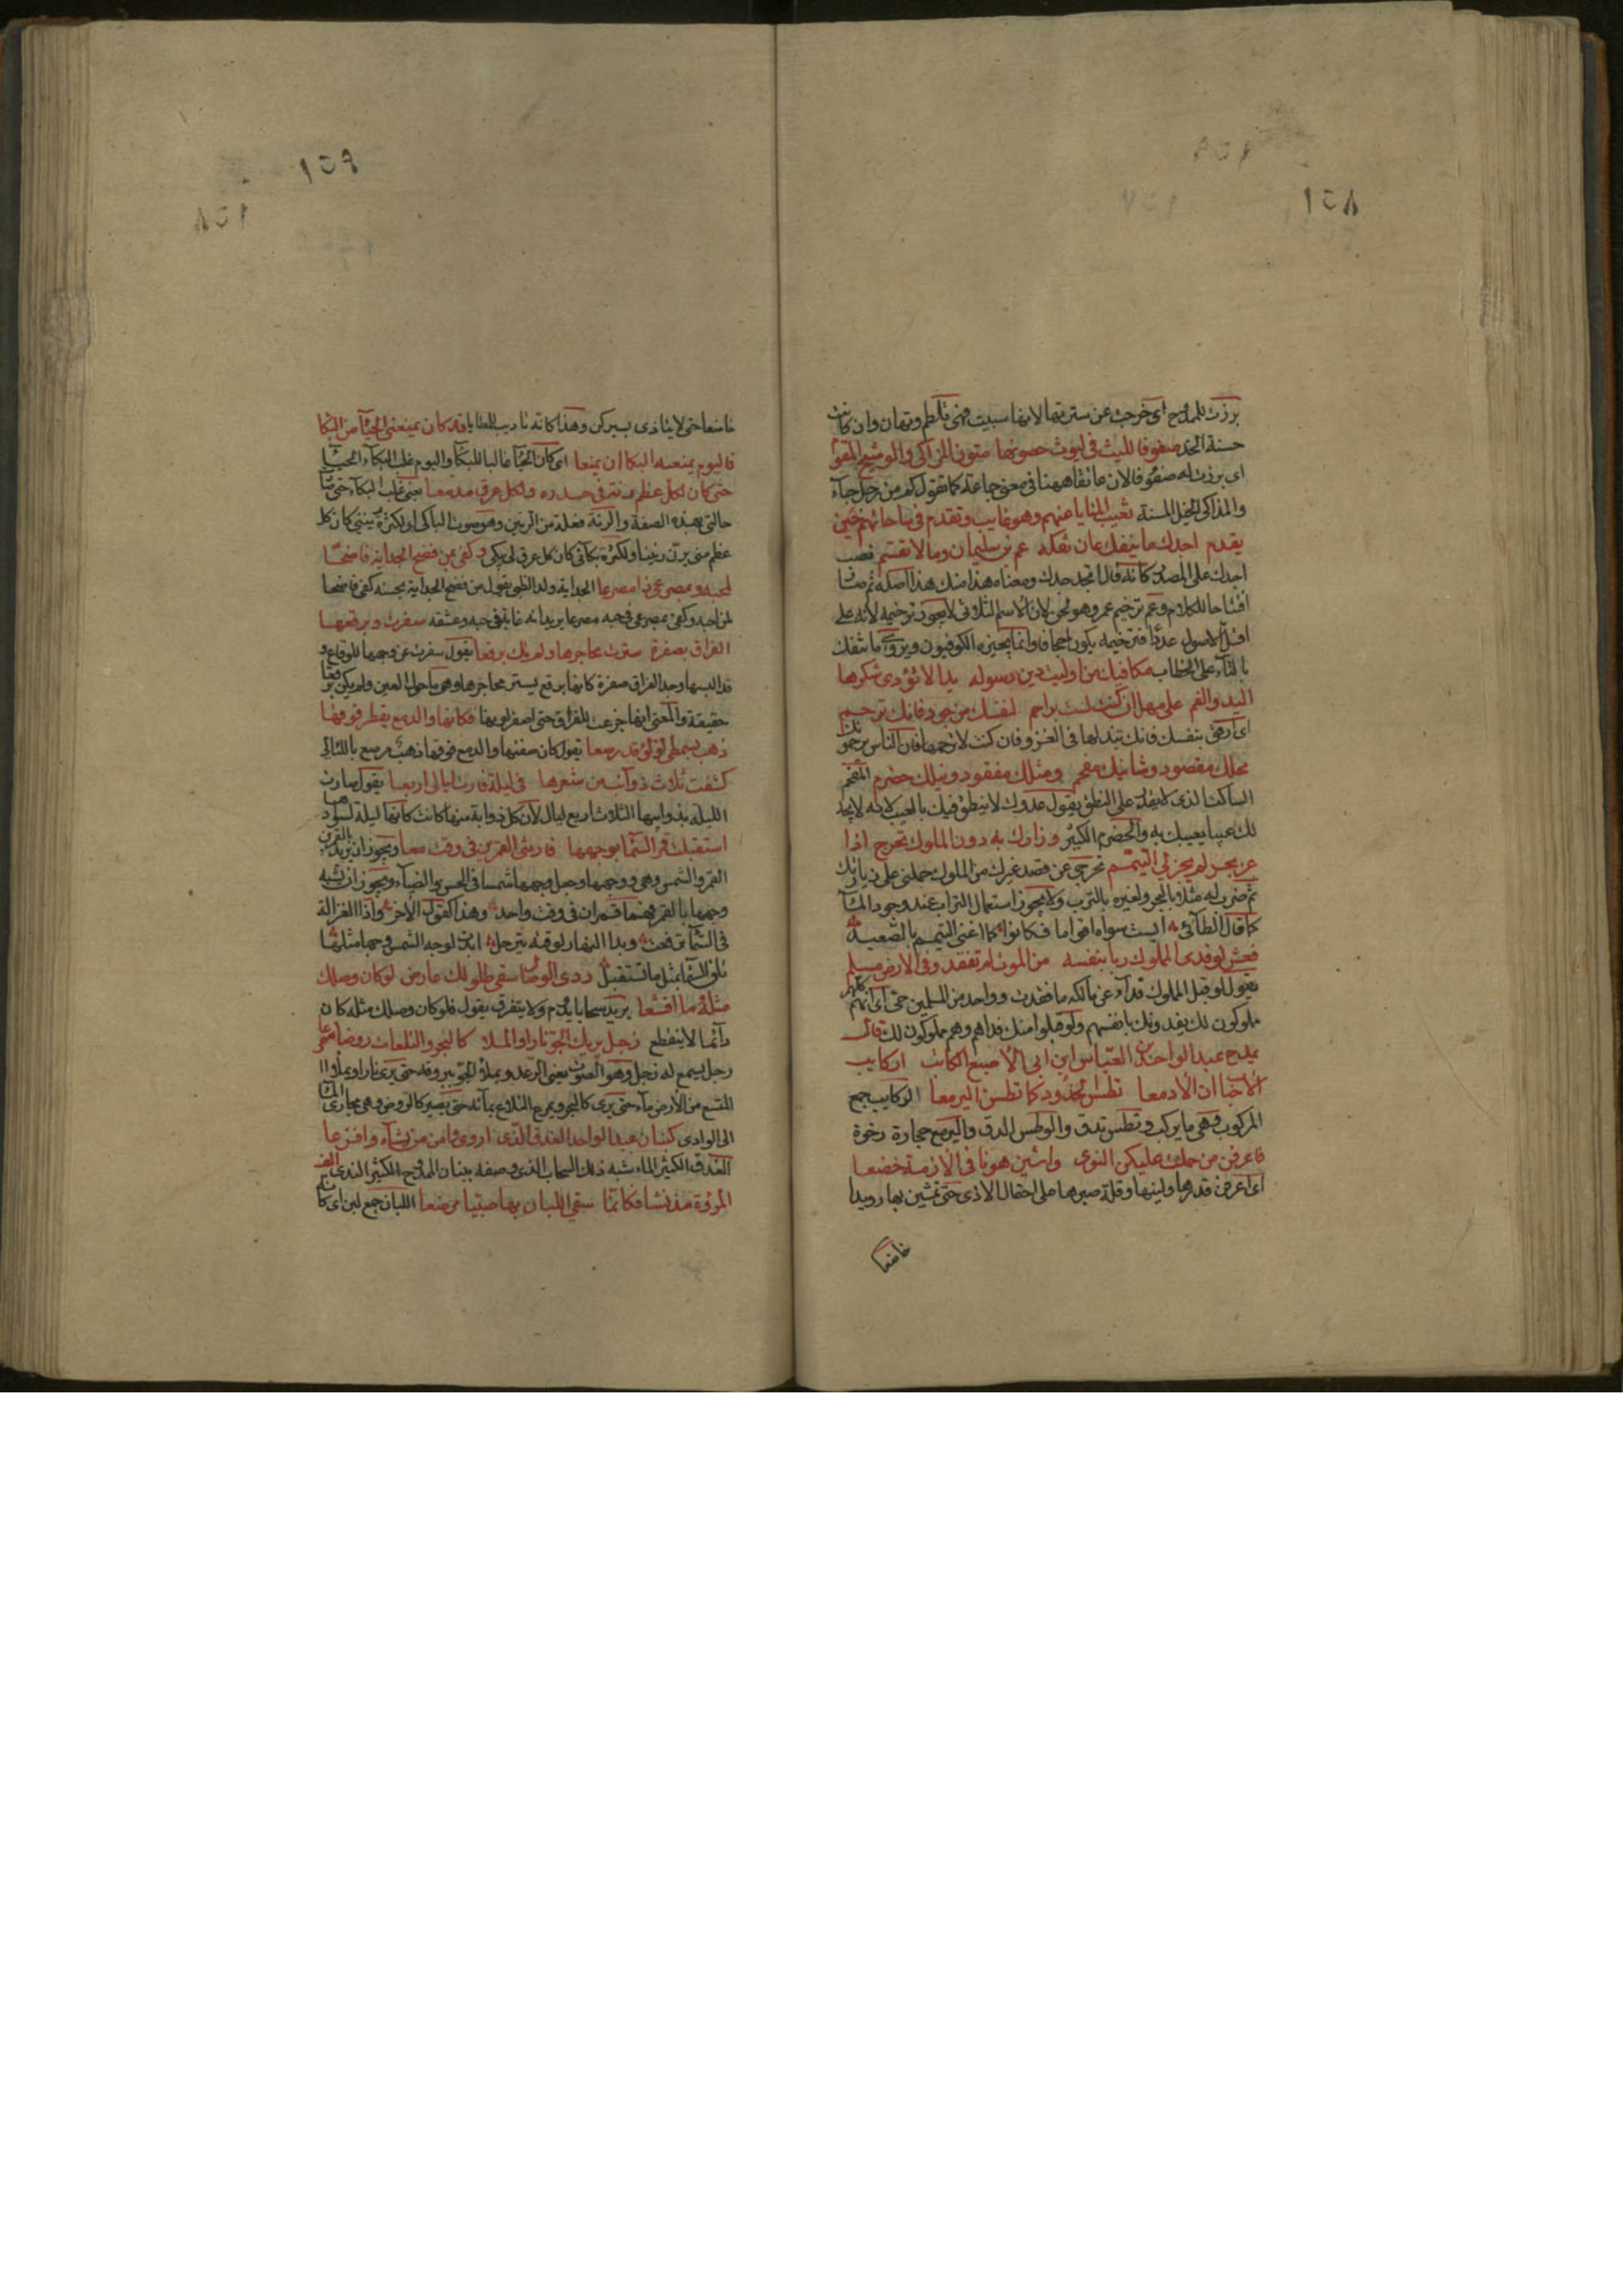 ١٥٨
برزت للروح اى خرجت عن سترتها لانها سبيت فهى تلطم وتهان وان كانت
حسنة الخد صفوفا لليث فى ليوث حصونها متون المذاكى والوشيج المقوم
اى برزت له صفوفا لان عاتقا ههنا فى معنى جماعة كما تقول كم من رجل جاء
والمذاكى الخيل المسنة تغيب المنايا عنهم وهو غايب وتقدم فى ساحاتهم حين
يقدم اجدك ما ينفك عان تفكه عم بن سليمان ومالا تقسم نصب
اجدك على المصدر كانه قال اتجد جدك ومعناه هذا منك هذا اصله ثم صار
افتتاحا للكلام وعم ترخيم عمر وهو لحن لان الاسم الثلاثى لا يجوز ترخيمه لانه على
اقل الاصول عددا فترخيمه يكون اجحافا وانما يجيزه الكوفيون ويروى ما تنفك
بالتاء على الخطاب مكافيك من اوليت دين رسوله يدا لا تؤدى شكرها
اليد والفم على مهل ان كنت لست براحم لنفسك من جود فانك ترحم
اى ارفق بنفسك فانك تبذلها فى الغزو فان كنت لا ترحمها فان الناس يرحمونك
محلك مقصود وشانيك مفحم ومثلك مفقود ونيلك خضرم المفحم
الساكت الذى لا يقدر على النطق يقول عدوك لا ينطق فيك بالعيب لانه لا يجد
لك عيبا يعيبك به والخضرم الكثير وزارك به دون الملوك تحرج اذا
عن بحر لم يجز لى التيمم تحرجى عن قصد غيرك من الملوك حملنى على زيارتك
ثم ضرب له مثلا بالبحر ولغيره بالترب ولا يجوز استعمال التراب عند وجود الماء
كما قال الطائى لبست سواه اقواما فكانوا كما اغنى التيمم بالصعيد
فعش لو فدى المملوك ربا بنفسه من الموت لم تفقد وفى الارض مسلم
يقول لو قبل المملوك فداء عن مالكه ما فقدت وواحد من المسلمين حى اى انهم كلهم
مملوكون لك يفدونك بانفسهم ولو قبلوا منك فداهم وهم مملوكون لك وقال
يمدح عبد الواحد بن العباس ابن ابى الاصبع الكاتب اركايب
الاحباب ان الادمعا تطس الخدود كما تطسن اليرمعا الركايب جمع
المركوب وهى ما يركب وتطس تدق والوطس الدق واليرمع حجارة رخوة
فاعرفن من حملت عليكن النوى وامشين هونا فى الازمة خضعا
اى اعرفن قدرها ولينها وقلة صبرها على احتمال الاذى حتى تمشين بها رويدا
خاضعا
١٥٩
خاضعا حتى لا يتاذى بسيركن وهذا كانه تاديب للمطايا قد كان يمنعنى الحياء من البكا
فاليوم يمنعه البكا ان يمنعا اى كان الحياء غالبا للبكاء واليوم غلب البكاء الحياء
حتى كان لكل عظم رنة فى جلده ولكل عرق مدمعا يعنى غلب البكاء حتى صار
حالتى بهذه الصفة والرنة فعلة من الرنين وهو صوت الباكى اى لكثرة رنينى كان كل
عظم منى يرن رنينا ولكثرة بكائى كان كل عرق لى يبكى وكفى بمن فضح الجداية فاضحا
لمحبه وبمصرعى ذا مصرعا الجداية ولد الظبى يقول من فضح الجداية بحسنه كفى فاضحا
لمن احبه وكفى بمصرعى فى حبه مصرعا يريد انه غاية فى حبه وعشقه سفرت وبرقعها
الفراق بصفرة سترت محاجرها ولم تك برقعا يقول سفرت عن وجهها للوداع و
قد البسها وجد الفراق صفرة كانها برقع يستر محاجرها وهى ما حول العين ولم يكن برقعا
حقيقة والمعنى انها جزعت للفراق حتى اصفر لونها فكانها والدمع يقطر فوقها
ذهب بسمطى لؤلؤ قد رصعا يقول كان صفتها والدمع فوقها ذهب مرصع باللئالى
كشفت ثلاث ذوائب من شعرها فى ليلة فارت ليالى اربعا يقول صارت
الليلة بذوايبها الثلاث اربع ليال لان كل ذوابة منها كانت كانها ليلة لسوادها
استقبلت قمر السماء بوجهها فارتنى القمرين فى وقت معا ويجوز ان يريد بالقمرين
القمر والشمس وهى ووجهها وجعل وجهها شمسا فى الحسن والضياء ويجوز ان يشبه
وجهها بالقمر فهما قمران فى وقت واحد وهذا كقول الاخر واذا الغزالة
فى السماء ترفعت وبدا النهار لوقته يترجل ابدت لوجه الشمس وجها مثلها
تلقى السماء بمثل ما تستقبل ردى الوصال سقى طلولك عارض لو كان وصلك
مثله ما اقشعا يريد سحابا يدوم ولا يتفرق يقول فلو كان وصلك مثله كان
دائما لا ينقطع زجل يريك الجو نارا والملا كالبحر والتلعات روضا ممرعا
زجل يسمع له زجل وهو الصوت يعنى الرعد ويملأ الجو ببروقه حتى يرى نارا ويملأ الملا
المتسع من الارض ماء حتى يرى كالبحر ويمرع التلاع بمائه حتى يصير كالروض وهى مجارى الماء
الى الوادى كبنان عبد الواحد الغدق الذى اروى وامن من يشاء وافزعا
الغدق الكثير الماء شبه ذلك السحاب الذى وصفه ببنان الممدوح الكثير الندى الف
المروة مذ نشا فكانما سقى اللبان بها صبيا مرضعا اللبان جمع لبن اى كانه